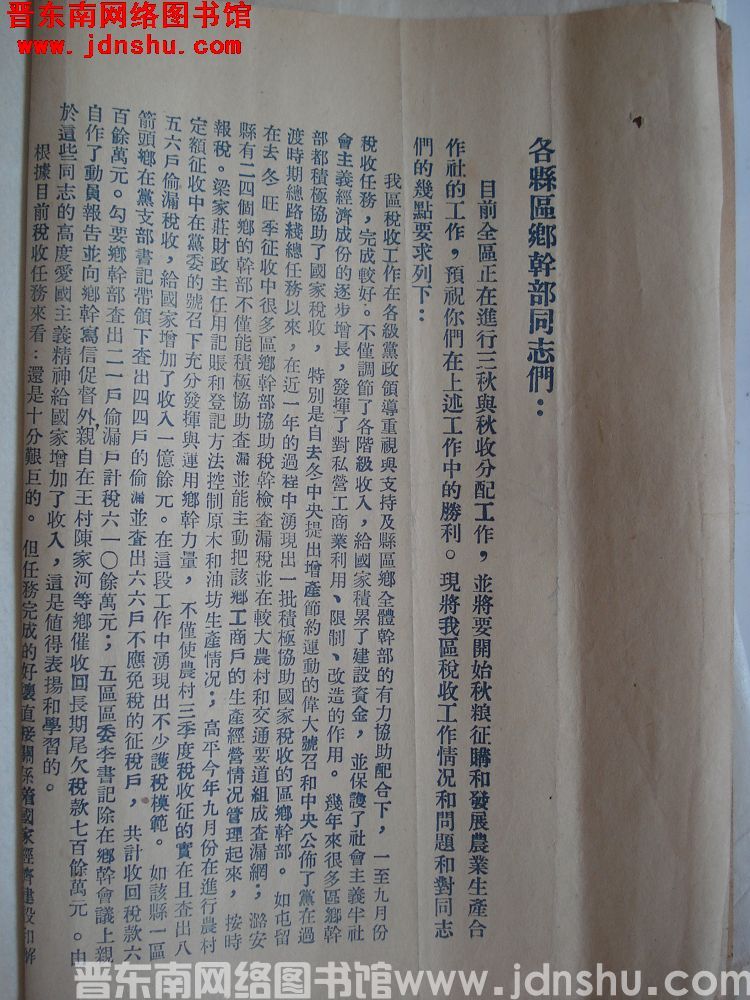 晋东南网络图书馆
www.jdnshu.com
各縣區鄉幹部同志們：
目前全區正在進行三秋與秋收分配工作，並將要開始秋粮征購和發展農業生產合
作社的工作，預祝你們在上述工作中的勝利。現將我區稅收工作情況和問題和對同志
們的幾點要求列下：
我區稅收工作在各級黨政領導重視與支持及縣區鄉全體幹部的有力協助配合下，一至九月份
稅收任務，完成較好。不僅調節了各階級收入，給國家積累了建設資金，並保護了社會主義半社
會主義經濟成份的逐步增長，發揮了對私營工商業利用、限制、改造的作用。幾年來很多區鄉幹
部都積極協助了國家稅收，特別是自去冬中央提出增產節約運動的偉大號召和中央公佈了黨在過
渡時期總路綫總任務以來，在近一年的過程中湧現出一批積極協助國家稅收的區鄉幹部。如屯留
在去冬旺季征收中很多區鄉幹部協助稅幹檢查漏稅並在較大農村和交通要道組成查漏網；潞安
縣有二四個鄉的幹部不僅能積極協助查漏並能主動把該鄉工商戶的生產經營情況管理起來，按時
報稅。梁家莊財政主任用記賬和登記方法控制原木和油坊生產情況；高平今年九月份在進行農村
定額征收中在黨委的號召下充分發揮與運用鄉幹力量，不僅使農村三季度稅收征的實在且查出八
五六戶偷漏稅收，給國家增加了收入一億餘元。在這段工作中湧現出不少護稅模範。如該縣一區
箭頭鄉在黨支部書記帶領下查出四四戶的偷漏並查出六六戶不應免稅的征稅戶，共計收回稅款六
百餘萬元。勾要鄉幹部查出二一戶偷漏戶計稅六一〇餘萬元；五區區委李書記除在鄉幹會議上親
自作了動員報告並向鄉幹寫信促督外，親自在王村陳家河等鄉催收回長期尾欠稅款七百餘萬元。由
於這些同志的高度愛國主義精神給國家增加了收入，這是值得表揚和學習的。
根據目前稅收任務來看：還是十分艱巨的。但任務完成的好壞直接關係着國家經濟建設和解
晋东南网络图书馆 www.jdnshu.com